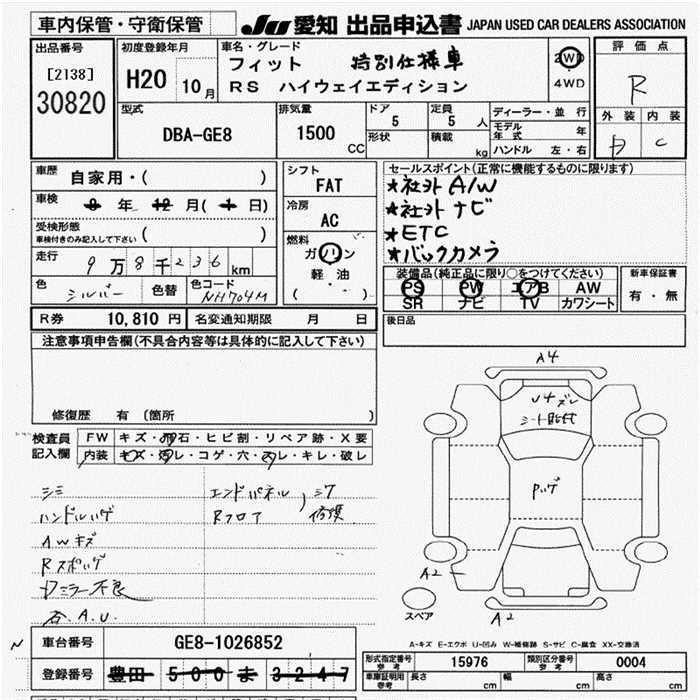 車内保管・守衛保管 JU 愛知 出品申込書 JAPAN USED CAR DEALERS ASSOCIATION
出品番号
[2138]
30820
初度登録年月
H20 10月
車名・グレード
フィット 特別仕様車
RS ハイウェイエディション
2WD
4WD
評価点
R
外装 内装
C
型式
DBA-GE8
排気量
1500 CC
ドア
5
形状
定員
5 人
積載
kg
ディーラー・並行
モデル年式 年
ハンドル 左・右
車歴
自家用・( )
車検
9 年 12 月 ( 1 日)
受検形態
車検付きのみ記入して下さい ( )
走行
9万8千236 km
色
シルバー
色替
色コード
NH704M
シフト
FAT
冷房
AC
燃料
ガソリン
軽油
( ・ )
セールスポイント(正常に機能するものに限ります)
★社外A/W
★社外ナビ
★ETC
★バックカメラ
装備品(純正品に限り○をつけてください)
PS PW エアB AW
SR ナビ TV カワシート
新車保証書
有・無
R券 10,810 円 名変通知期限 月 日
後日品
注意事項申告欄(不具合内容等は具体的に記入して下さい)
修復歴 有 (箇所 )
検査員記入欄
FW キズ・飛石・ヒビ割・リペア跡・X要
内装 キズ・汚レ・コゲ・穴・スレ・キレ・破レ
シミ
ハンドルハゲ
AWキズ
Rスポハゲ
Dミラー不良
社外A.U.
エンドパネル
Rフロア
修復
A4
Pハゲ
A2
A2
スペア
A-キズ E-エクボ U-凹み W-補修跡 S-サビ C-腐食 XX-交換済
N
車台番号 GE8-1026852
登録番号 豊田 500 ま 3247
形式指定番号 参考 15976 類別区分番号 参考 0004
車庫証明用 参考 長さ cm 幅 cm 高さ cm